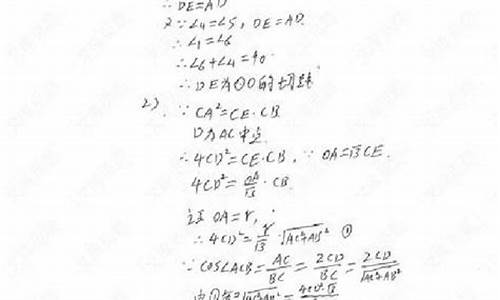 ∴ DE=AD
又∵∠4=∠5, DE=AD.
∴∠1=∠6
∴∠6+∠4=90°
∴DE为⊙O的切线
2). ∵ CA²=CE·CB
D为AC中点
∴4CD²=CE·CB, ∵ OA=√3CE.
4CD²=OA/√3·CB
设OA=r,
∴4CD²=r/√3 √(AC²+AB²) ①
∵COS∠ACB=AC/BC=2CD/BC=2CD/√(AC²+AB²)